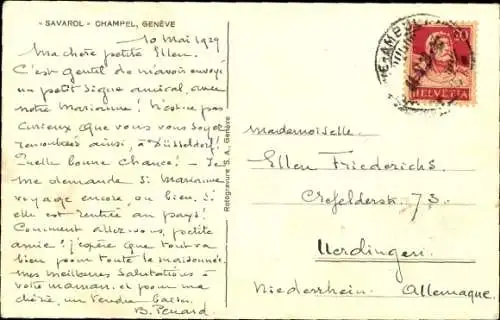 - SAVAROL - CHAMPEL, GENÈVE
10 Mai 1929
Ma chère petite Ellen.
C'est gentil de m'avoir envoyé
un petit signe amical, avec
notre Marianne! N'est-ce pas
curieux que vous vous soyez
rencontrées ainsi, à Düsseldorf!
Quelle bonne chance! - Je
me demande si Marianne
voyage encore, ou bien, si
elle est rentrée au pays!
Comment allez-vous, petite
amie? j'espère que tout va
bien pour toute la maisonnée.
mes meilleures salutations à
votre maman. et pour ma
chérie, un tendre baiser
B. Penard
Rotogravure S. A., Genève
20
HELVETIA
Mademoiselle.
Ellen Friederichs.
Crefelderstr. 73.
Uerdingen.
Niederrhein. Allemagne.